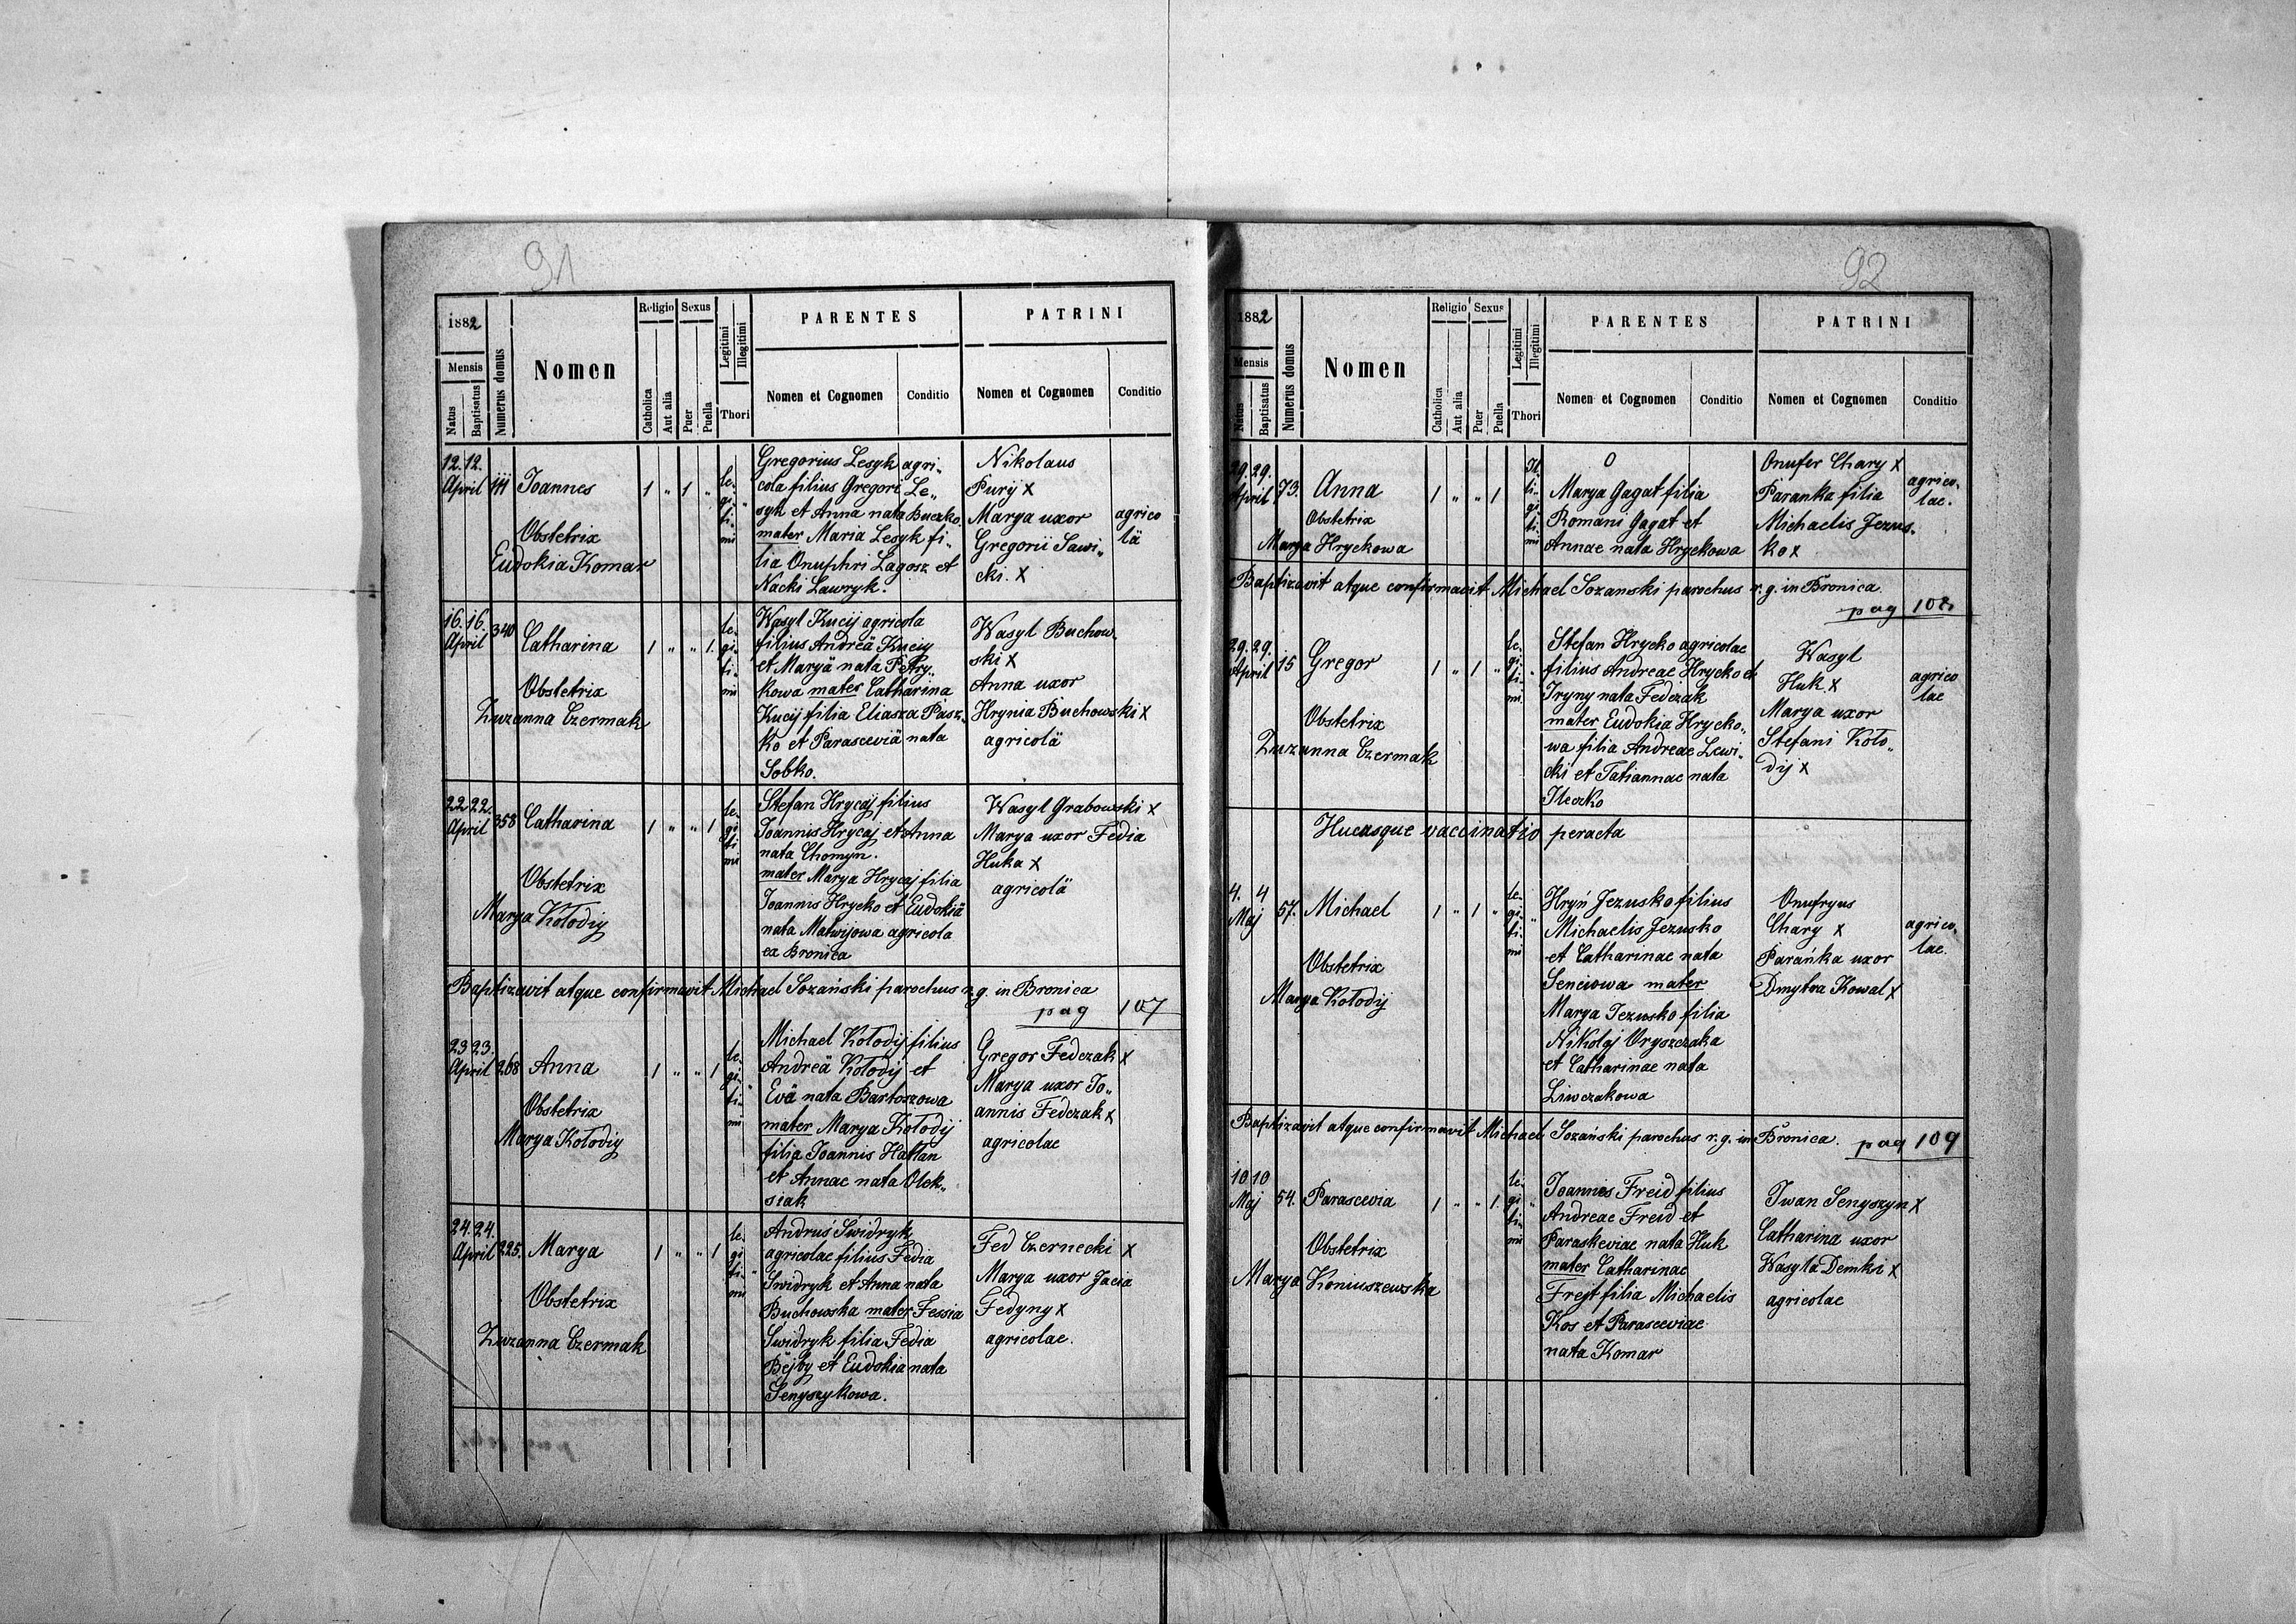 91
1882
Mensis
Natus
Baptisatus
Numerus domus
Nomen
Religio
Catholica
Aut alia
Sexus
Puer
Puella
Legitimi
Illegitimi
Thori
PARENTES
Nomen et Cognomen
Conditio
PATRINI
Nomen et Cognomen
Conditio
12. 12.
April
111
Joannes
Obstetrix
Eudokia Komar
1 " 1 "
le-
gi-
ti-
mi
Gregorius Lesyk agri-
cola filius Gregori Le„
syk et Anna nata Buczko.
mater Maria Lesyk fi-
lia Onuphri Lagosz et
Nacki Lawryk.
Nikolaus
Purij X
Marya uxor
Gregorii Sawi„
cki. X
agrico
lä
16. 16.
April
340
Catharina
Obstetrix
Zuzanna Czermak
1 " " 1.
le-
gi-
ti-
mi
Wasyl Kucij agricola
filius Andreä Kuciy
et Maryä nata Petry„
kowa mater Catharina
Kucij filia Eliasza Pasz„
ko et Parasceviä nata
Sobko.
Wasyl Buchow„
ski X
Anna uxor
Hrynia Buchowski X
agricolä
22 22.
April
358
Catharina
Obstetrix
Marya Kołodiy
1 " " 1
le-
gi
ti
mi
Stefan Hrycaj filius
Joannis Hrycaj et Anna
nata Chomyn.
mater Marya Hrycaj filia
Joannis Hrycko et Eudokiä
nata Matwijowa agricola
ex Bronica
Wasyl Grabowski X
Marya uxor Fedia
Huka X
agricolä
Baptizavit atque confirmavit Michael Sozański parochus r. g. in Bronica
pag 107
23 23.
April
268
Anna
Obstetrix
Marya Kołodiy
1 " " 1
le-
gi-
ti-
mi
Michael Kołodij filius
Andreä Kołodij et
Evä nata Bartoszowa
mater Marya Kołodij
filia Joannis Hatlan
et Annae nata Olek„
siak
Gregor Fedczak X
Marya uxor Jo„
annis Fedczak X
agricolae
24. 24.
April
225.
Marya
Obstetrix
Zuzanna Czermak
1 " " 1
le-
gi
ti-
mi
Andruś Swidryk
agricolae filius Fedia
Swidryk et Anna nata
Buchowska mater Fessia
Swidryk filia Fedia
Bejby et Eudokia nata
Senyszykowa.
Fed Czernecki X
Marya uxor Jacia
Fedyny X
agricolae.
92
1882
Mensis
Natus
Baptisatus
Numerus domus
Nomen
Religio
Catholica
Aut alia
Sexus
Puer
Puella
Legitimi
Illegitimi
Thori
PARENTES
Nomen et Cognomen
Conditio
PATRINI
Nomen et Cognomen
Conditio
29. 29.
April
73.
Anna
Obstetrix
Marya Hryckowa
1 " " 1
Il-
li-
gi
ti-
mi
0
Marya Gagat filia
Romani Gagat et
Annae nata Hryckowa
Onufer Chary X
Paranka filia
Michaelis Jezus„
ko X
agrico„
lae.
Baptizavit atque confirmavit Michael Sozanski parochus r. g. in Bronica.
pag 108
29. 29.
April
15
Gregor
Obstetrix
Zuzanna Czermak
1 " 1 "
le-
gi-
ti-
mi.
Stefan Hrycko agricolae
filius Andreae Hrycko et
Iryny nata Fedczak
mater Eudokia Hrycko„
wa filia Andreae Lewi„
cki et Tatiannae nata
Ileczko
Wasyl
Huk X
Marya uxor
Stefani Koło„
dij X
agrico
lae
Hucusque vaccinatio peracta
4. 4
Maj
57.
Michael
Obstetrix
Marya Kołodij
1 " 1 "
le-
gi-
ti-
mi
Hryń Jezusko filius
Michaelis Jezusko
et Catharinae nata
Senciowa mater
Marya Jezusko filia
Nikołaj Oryszczaka
et Catharinae nata
Liwczakowa
Onufryus
Chary X
Parańka uxor
Dmytra Kowal X
agrico„
lae.
Baptizavit atque confirmavit Michael Sozański parochus r. g. in Bronica. pag 109
10 10
Maj
54.
Parascevia
Obstetrix
Marya Koniuszewska
1 " " 1.
le-
gi
ti-
mi
Joannes Freid filius
Andreae Freid et
Paraskeviae nata Huk
mater Catharinae
Frejt filia Michaelis
Kos et Parasceviae
nata Komar
Iwan Senyszyn X
Catharina uxor
Wasyla Demki X
agricolae